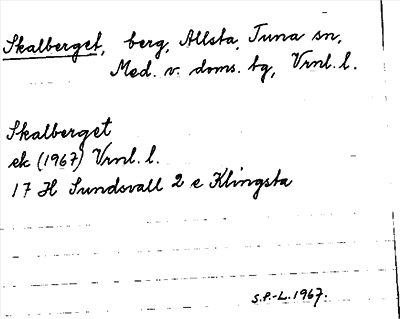 Skalberget, berg, Allsta, Tuna sn,
Med. v. doms. tg, Vrnl. l.
Skalberget
ek (1967) Vrnl. l.
17 H Sundsvall 2 e Klingsta
S.P.-L. 1967.